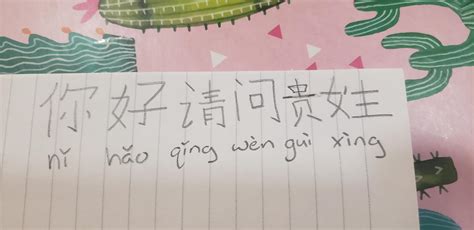 你好请问贵姓
nǐ hǎo qǐng wèn guì xìng